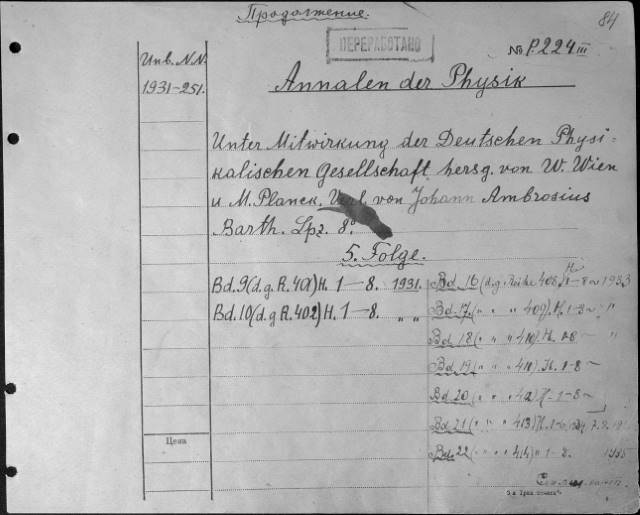 Продолжение.
84
ПЕРЕРАБОТАНО
№ P.224 III
Инв. N.N.
1931-251.
Annalen der Physik
Unter Mitwirkung der Deutschen Physi-
kalischen Gesellschaft hersg. von W. Wien
u M. Planck. Verl. von Johann Ambrosius
Barth. Lpz. 8°.
5. Folge.
Bd. 9(d.g R. 401) H. 1—8. 1931.
Bd. 10(d.g R. 402) H. 1—8. " "
Bd 16 (d.g. Reihe 408) H 1-8 1933
Bd. 17. ( " " " 409). H. 1-8 "
Bd 18 ( " " " 410) H. 1-8 "
Bd. 19 ( " " " 411) H. 1-8
Bd 20 ( " " " 412) H. 1-8
Bd. 21 ( " " " 413) H.
Bd. 22 ( " " " 414) 1-8. 1935
Цена